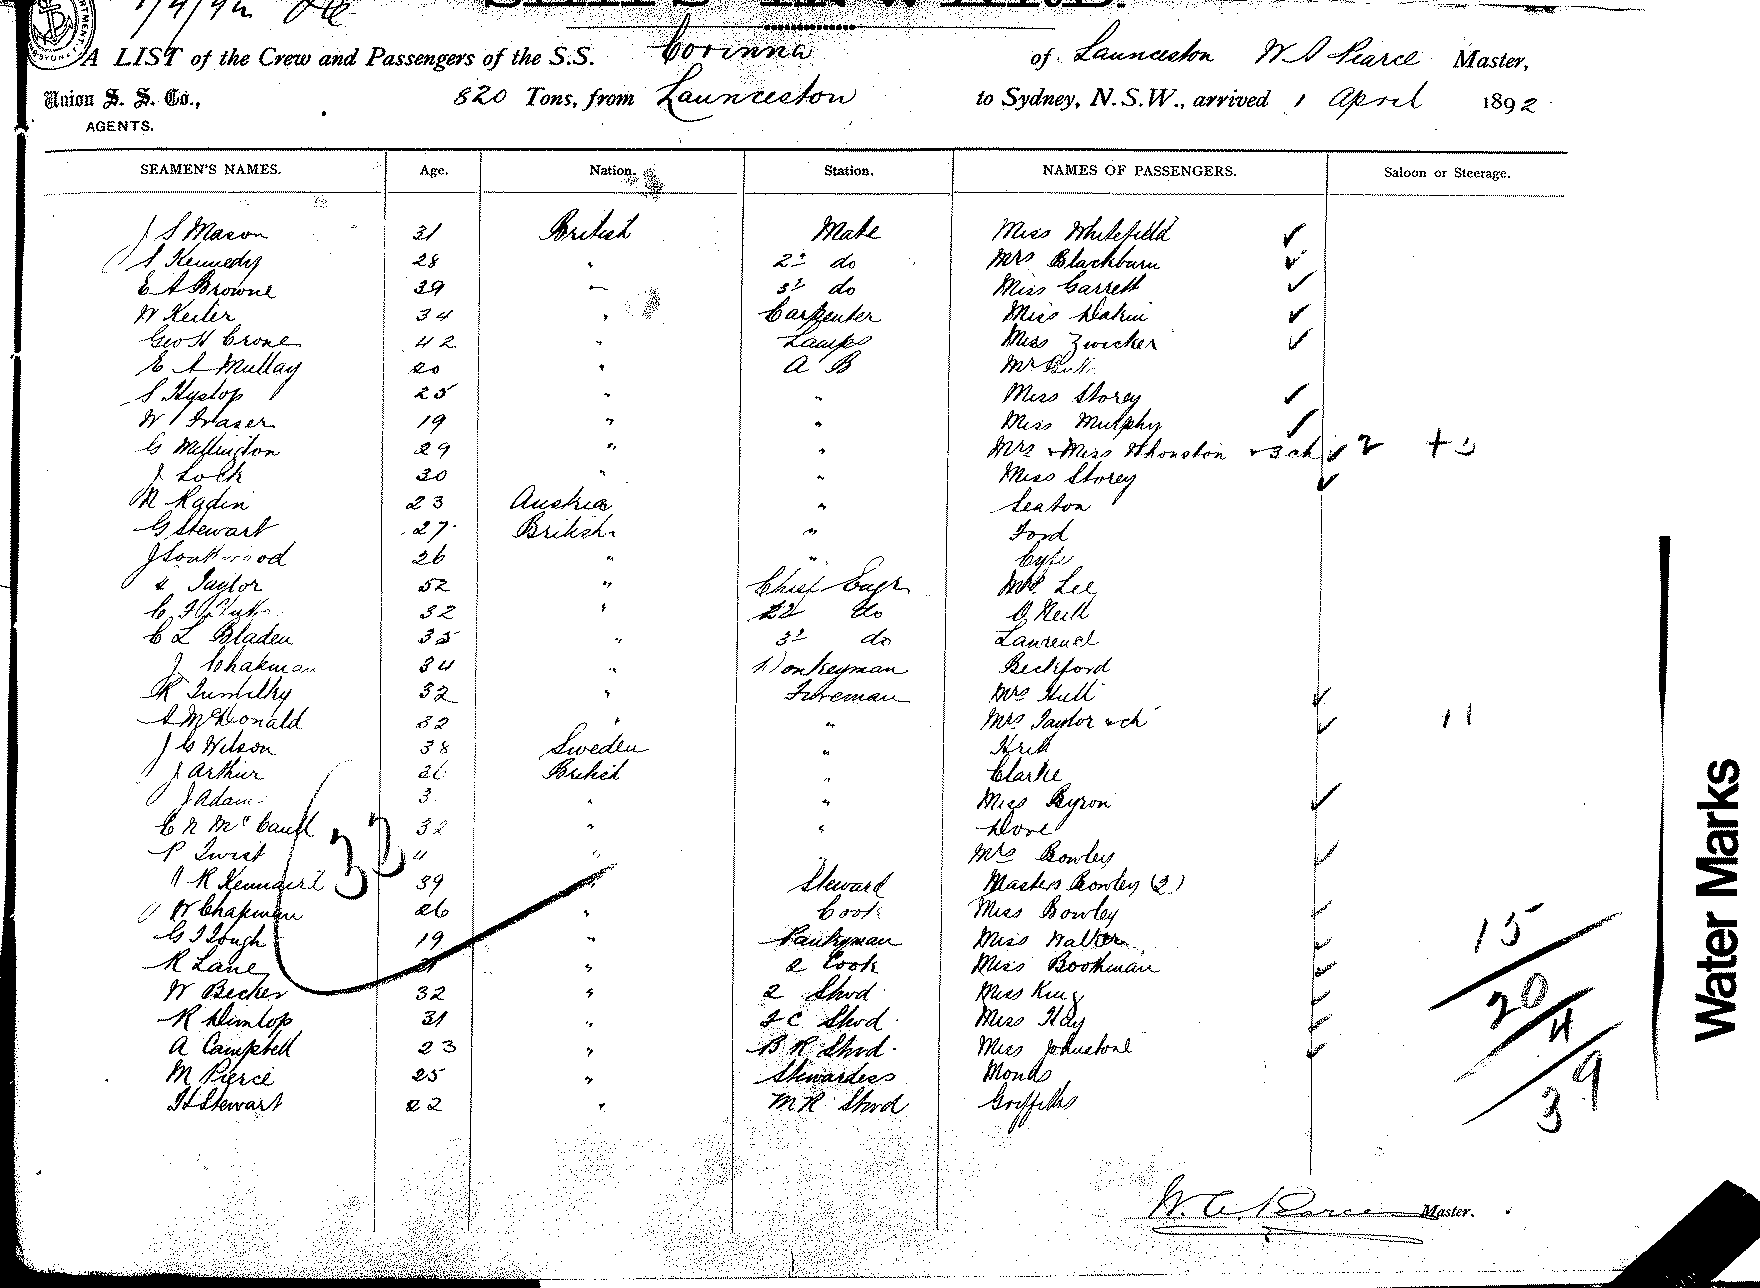 1/4/92
A LIST of the Crew and Passengers of the S.S. Corinna of Launceston W A Pearce Master,
Union S. S. Co., 820 Tons, from Launceston to Sydney, N.S.W., arrived 1 April 1892
AGENTS.
SEAMEN'S NAMES. Age. Nation. Station. NAMES OF PASSENGERS. Saloon or Steerage.
J S Mason 31 British Mate Miss Whitefield ✓
S Kennedy 28 " 2d do Mrs Blackburn ✓
E A Browne 39 " 3d do Miss Garrett ✓
W Keiler 34 " Carpenter Miss Dakin ✓
Geo H Crone 42 " Lamps Miss Zwicker ✓
E A Mullay 20 " A B Mr
S Hyslop 25 " " Miss Storey ✓
W Fraser 19 " " Miss Murphy ✓
G Wallington 29 " " Mrs + Miss Whonston + 3 ch ✓ 2 + 3
J Lock 30 " " Miss Storey ✓
M Radin 23 Austria " Seaton
G Stewart 27 British " Ford
J 26 " "
Taylor 52 " Chief Engr Lee
32 " 2d do O Neill
C L Bladen 35 " 3d do Laurence
J Chapman 34 " Donkeyman Beckford
R Tumilty 32 " Fireman Mrs Hull ✓
A McDonald 32 " " Mrs Taylor + ch ✓ 11
J G Wilson 38 Sweden "
J Arthur British " Clarke
J Adam 3 " " Miss Byron ✓
C N 32 " " Dove
P Twist " Mrs Bowley ✓
R 39 " Steward Masters Bowley (2)
W Chapman 26 " Cook Miss Bowley ✓
G I Lough 19 " Pantryman Miss Walker ✓
R Lane " 2 Cook Miss Bookman ✓
W Becker 32 " 2 Stwd Miss King ✓
R Dunlop 31 " F C Stwd Miss Hay ✓
A Campbell 23 " B R Stwd Miss Johnstone ✓
M Pierce 25 " Stewardess Monds
H Stewart 22 " M R Stwd Griffiths
33
15
20
4
39
W. A. Pearce Master.
Water Marks